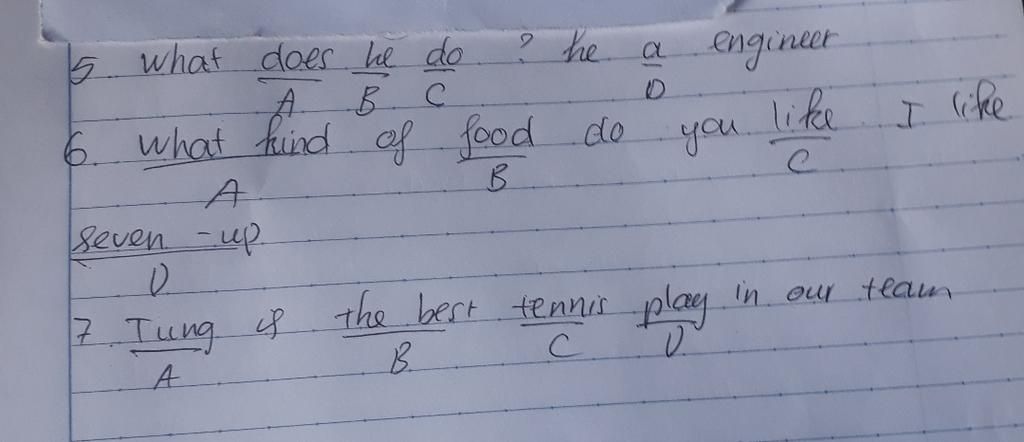 5. What does he do ? he a engineer
A B C D
6. What kind of food do you like I like
A B C
seven - up
D
7 Tung is the best tennis play in our team
A B C D